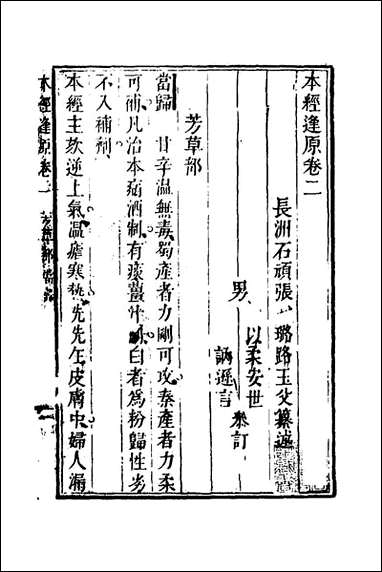 本經逢原卷二
長洲石頑張 璐路玉父纂述
男 以柔安世
訒遜言 參訂
芳草部
當歸 甘辛溫無毒蜀產者力剛可攻秦產者力柔
可補凡治本病酒制有痰薑汁 白者為粉歸性劣
不入補劑
本經主欬逆上氣溫瘧寒熱 洗在皮膚中婦人漏
本經逢原卷二 芳草部